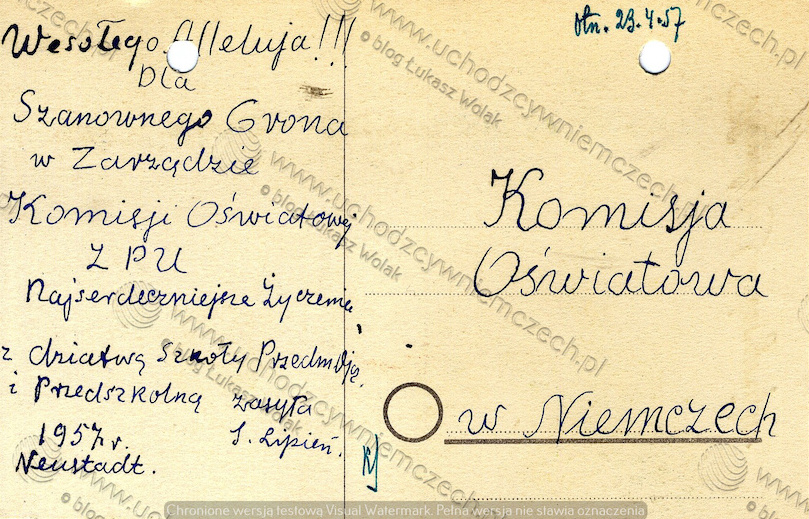 Wesołego Alleluja!!!
Dla
Szanownego Grona
w Zarządzie
Komisji Oświatowej
Z P U
Najserdeczniejsze Życzenia
z dziatwą Szkoły Przedm
i Przedszkolną zasyła
1957 r. S. Lipień.
Neustadt.
otn. 23.4.57
Komisja
Oświatowa
w Niemczech
www.uchodzcywniemczech.pl
© blog Łukasz Wolak
Chronione wersją testową Visual Watermark. Pełna wersja nie stawia oznaczenia